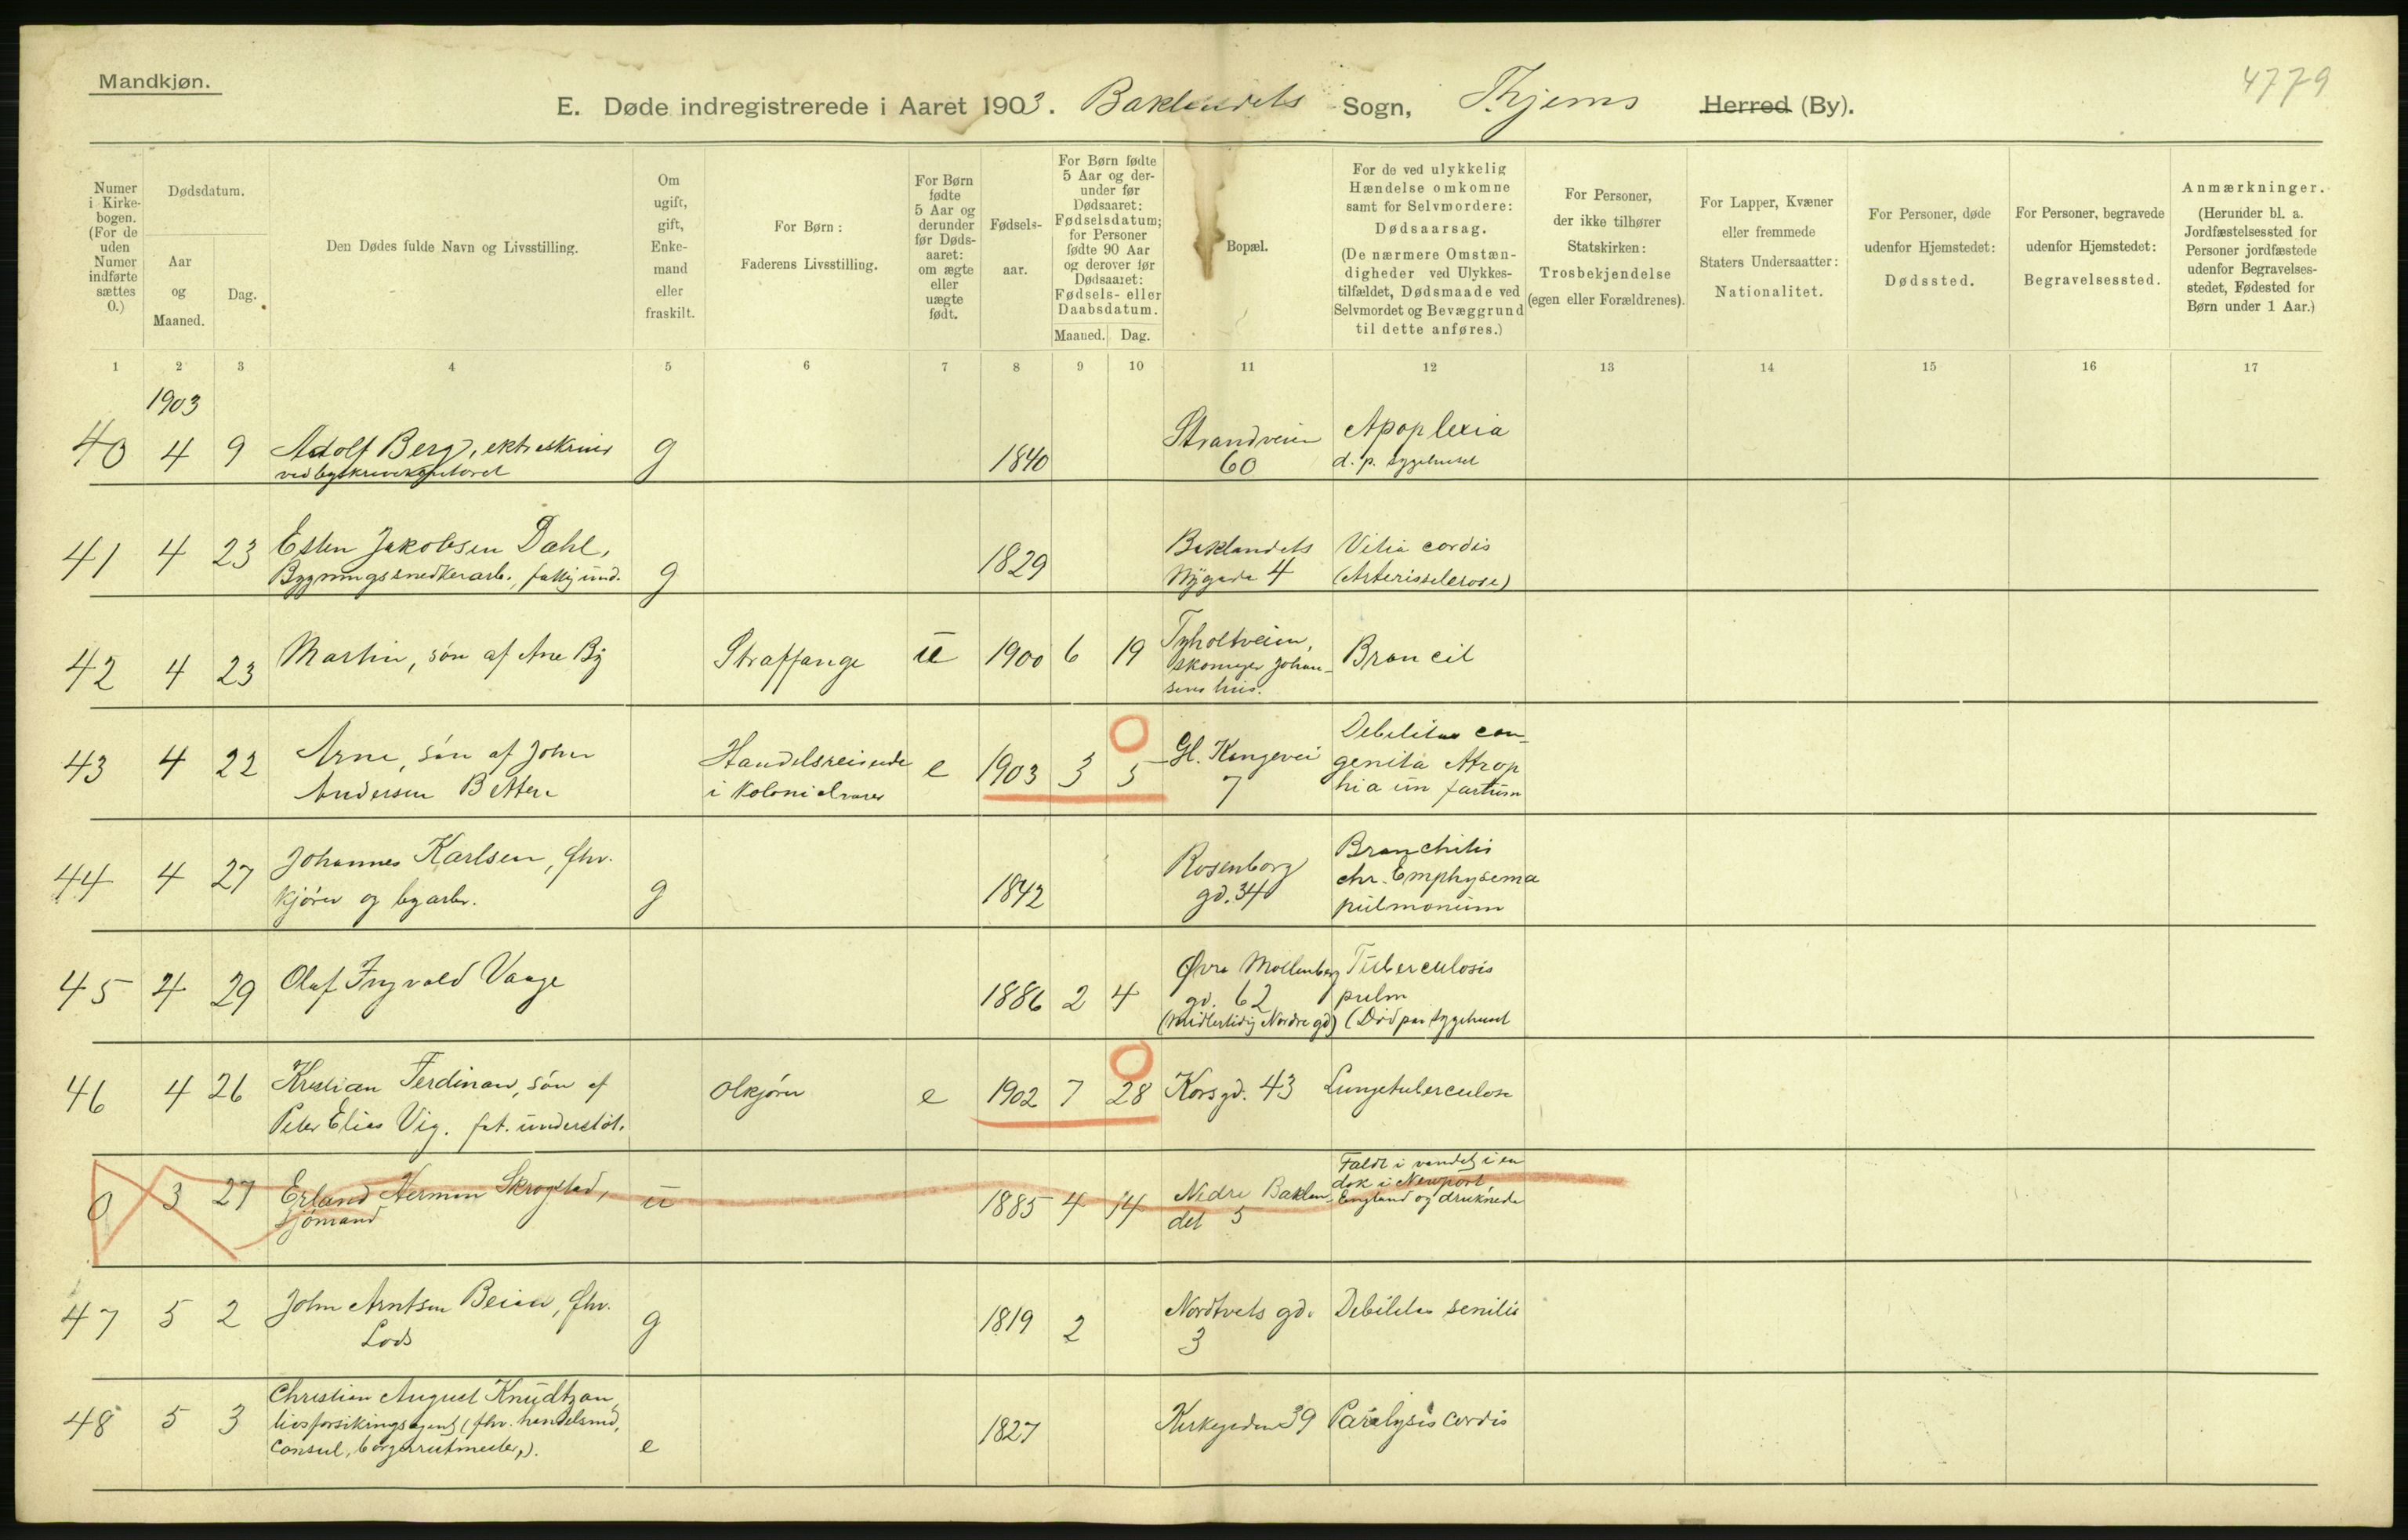 Mandkjøn.
4779
E. Døde indregistrerede i Aaret 1903. Baklandets Sogn, Thjems Herred (By).
Numer i Kirkebogen. (For de uden Numer indførte sættes 0.)
Dødsdatum.
Aar og Maaned.
Dag.
Den Dødes fulde Navn og Livsstilling.
Om ugift, gift, Enkemand eller fraskilt.
For Børn: Faderens Livsstilling.
For Børn fødte 5 Aar og derunder før Dødsaaret: om ægte eller uægte født.
Fødselsaar.
For Børn fødte 5 Aar og derunder før Dødsaaret: Fødselsdatum; for Personer fødte 90 Aar og derover før Dødsaaret: Fødsels- eller Daabsdatum.
Maaned. Dag.
Bopæl.
For de ved ulykkelig Hændelse omkomne samt for Selvmordere: Dødsaarsag.
(De nærmere Omstændigheder ved Ulykkestilfældet, Dødsmaade ved Selvmordet og Bevæggrund til dette anføres.)
For Personer, der ikke tilhører Statskirken: Trosbekjendelse (egen eller Forældrenes).
For Lapper, Kvæner eller fremmede Staters Undersaatter: Nationalitet.
For Personer, døde udenfor Hjemstedet: Dødssted.
For Personer, begravede udenfor Hjemstedet: Begravelsessted.
Anmærkninger. (Herunder bl. a. Jordfæstelsessted for Personer jordfæstede udenfor Begravelsesstedet, Fødested for Børn under 1 Aar.)
1 2 3 4 5 6 7 8 9 10 11 12 13 14 15 16 17
1903
40 4 9 Adolf Berg, ekstraskriver g 1840 Strandveien 60 Apoplexia
d. p. sygehuset
41 4 23 Esten Jakobsen Dahl, g 1829 Baklandets Nygade 4 Vitia cordis
Bygningssnedkerarb., fattig und. (Arterisclerose)
42 4 23 Martin, søn af Ane By Straffange u 1900 6 19 Tyholtveien, skomager Johansens hus. Broncit
43 4 22 Arne, søn af John Andersen Handelsreisende i Kolonialvarer e 1903 3 5 Gl. Kongevei 7 Debilitas congenita Atrophia
44 4 27 Johannes Karlsen, fhv. kjører og byarb. g 1842 Rosenborg gd. 34 Bronchitis chr. Emphysema pulmonum
45 4 29 Olaf Ingvald Vaage 1886 2 4 Øvre Møllenberg gd. 62 (midlertidig Nordre gd) Tuberculosis pulm (Død paa sygehuset
46 4 26 Kristian Ferdinan, søn af Peter Elias Vig. fat. understøt. Ølkjører e 1902 7 28 Korsgd. 43 Lungetuberculose
0 3 27 Erland Herman Skrogstad, sjømand u 1885 4 14 Nedre Baklandet 5 Faldt i vandet i en dok i Newport England og druknede
47 5 2 John Arntsen Beian, fhv. Lods g 1819 2 Nordtvets gd. 3 Debilitas senilis
48 5 3 Christian August Knudtzon, livsforsikringsagent (fhv. handelsmd, Consul, borgerritmester,). e 1827 Kirkegaden 39 Paralysis cordis